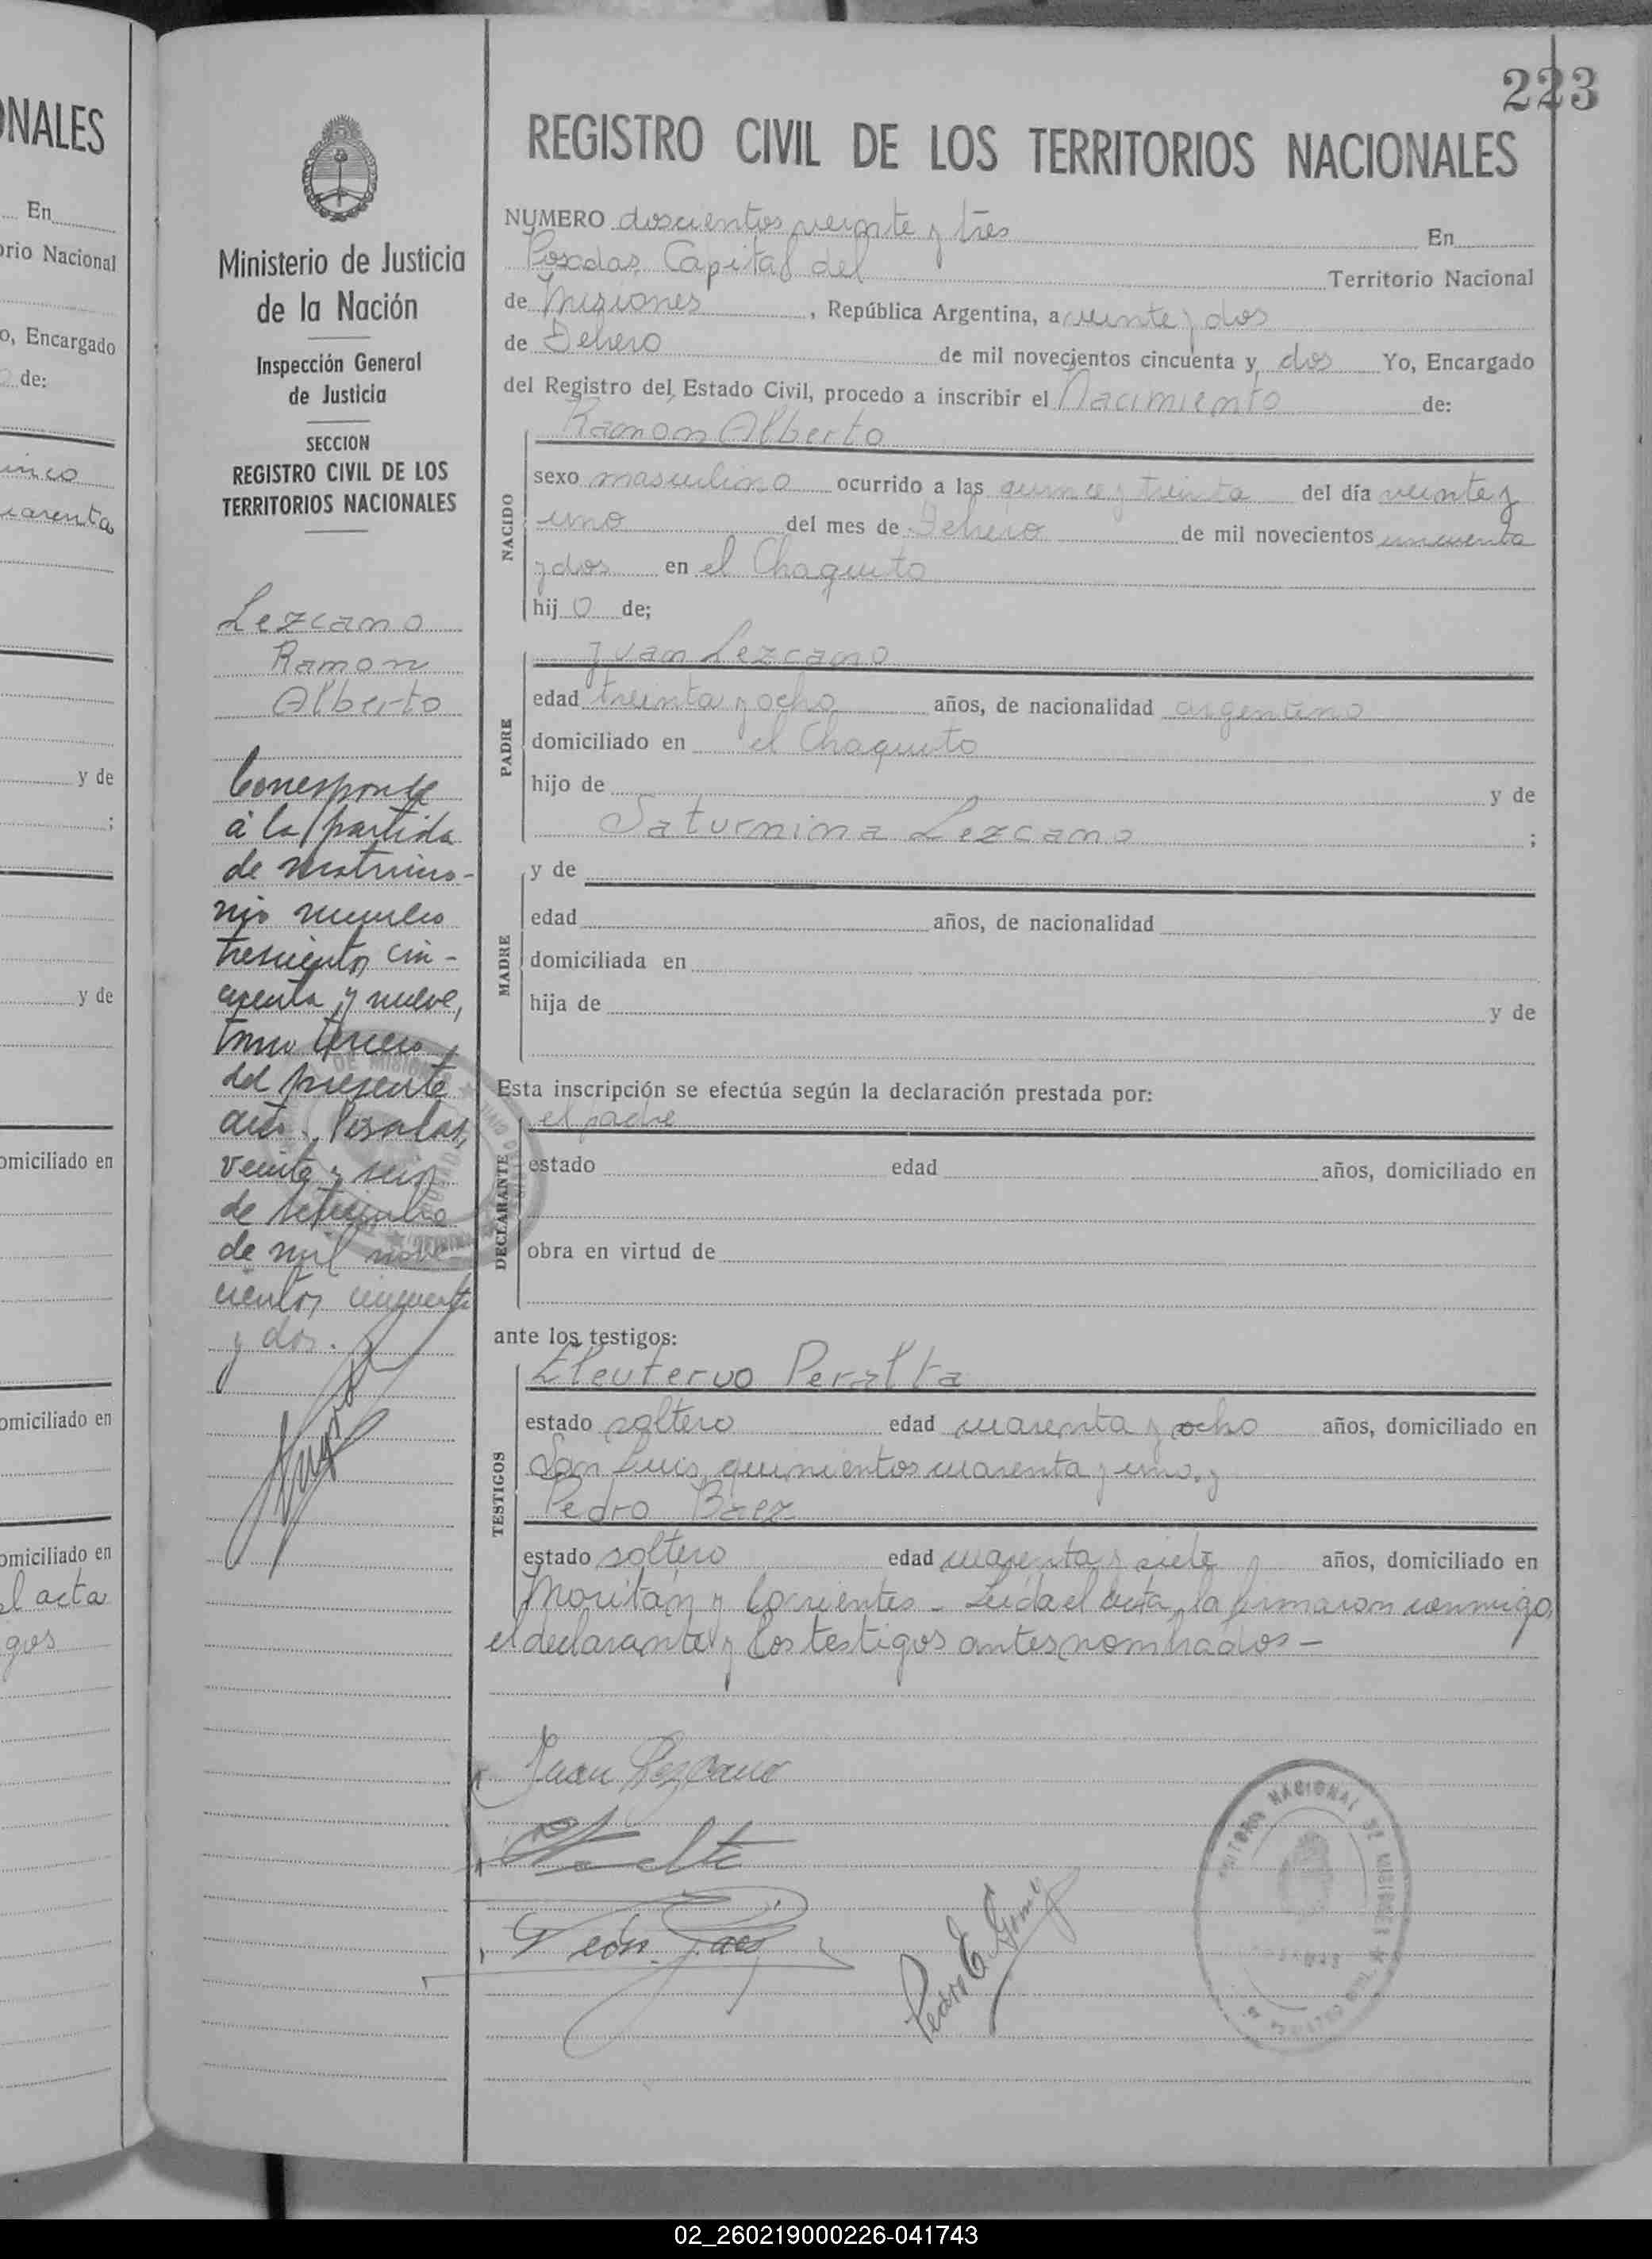 NALES
En
orio Nacional
o, Encargado
de:
inco
arenta
y de
;
y de
omiciliado en
omiciliado en
omiciliado en
l acta
gos
Ministerio de Justicia
de la Nación
Inspección General
de Justicia
SECCION
REGISTRO CIVIL DE LOS
TERRITORIOS NACIONALES
Lezcano
Ramon
Alberto
Corresponde
a la partida
de matrimo-
nio numero
trescientos cin-
cuenta y nueve,
tomo tercero
del presente
año. Posadas,
veinte y seis
de setiembre
de mil nove-
cientos cincuenta
y dos.
223
REGISTRO CIVIL DE LOS TERRITORIOS NACIONALES
NUMERO doscientos veinte y tres En
Posadas, Capital del Territorio Nacional
de Misiones, República Argentina, a veinte y dos
de Febrero de mil novecientos cincuenta y dos Yo, Encargado
del Registro del Estado Civil, procedo a inscribir el Nacimiento de:
Ramón Alberto
NACIDO
sexo masculino ocurrido a las quince y treinta del día veinte y
uno del mes de Febrero de mil novecientos cincuenta
y dos en el Chaquito
hij o de;
Juan Lezcano
PADRE
edad treinta y ocho años, de nacionalidad argentino
domiciliado en el Chaquito
hijo de y de
Saturnina Lezcano ;
y de
MADRE
edad años, de nacionalidad
domiciliada en
hija de y de
Esta inscripción se efectúa según la declaración prestada por:
el padre
DECLARANTE
estado edad años, domiciliado en
obra en virtud de
ante los testigos:
EleuterVo Peralta
TESTIGOS
estado soltero edad cuarenta y ocho años, domiciliado en
San Luis, quinientos cuarenta y uno. y
Pedro Báez
estado soltero edad cuarenta y siete años, domiciliado en
Moritán y Corrientes - Leída el acta, la firmaron conmigo,
el declarante y los testigos antes nombrados -
Juan Lezcano
Pedro E. Gomez
NACIONAL DE MISIONES
02_260219000226-041743